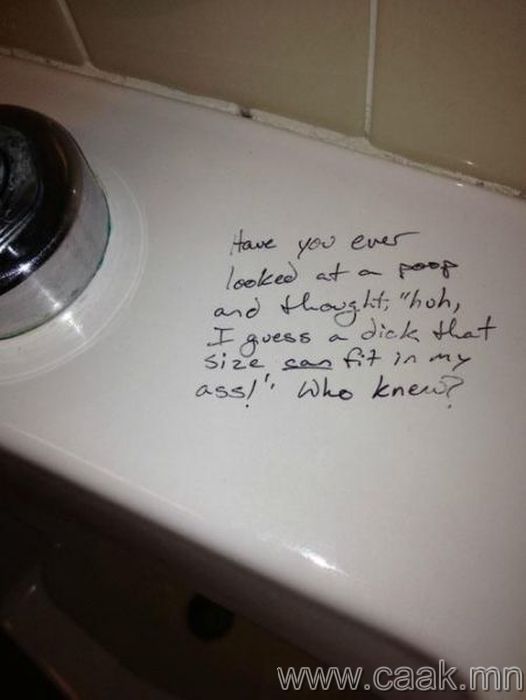 Have you ever
looked at a poop
and thought, "huh,
I guess a dick that
size can fit in my
ass!". Who knew?
www.caak.mn